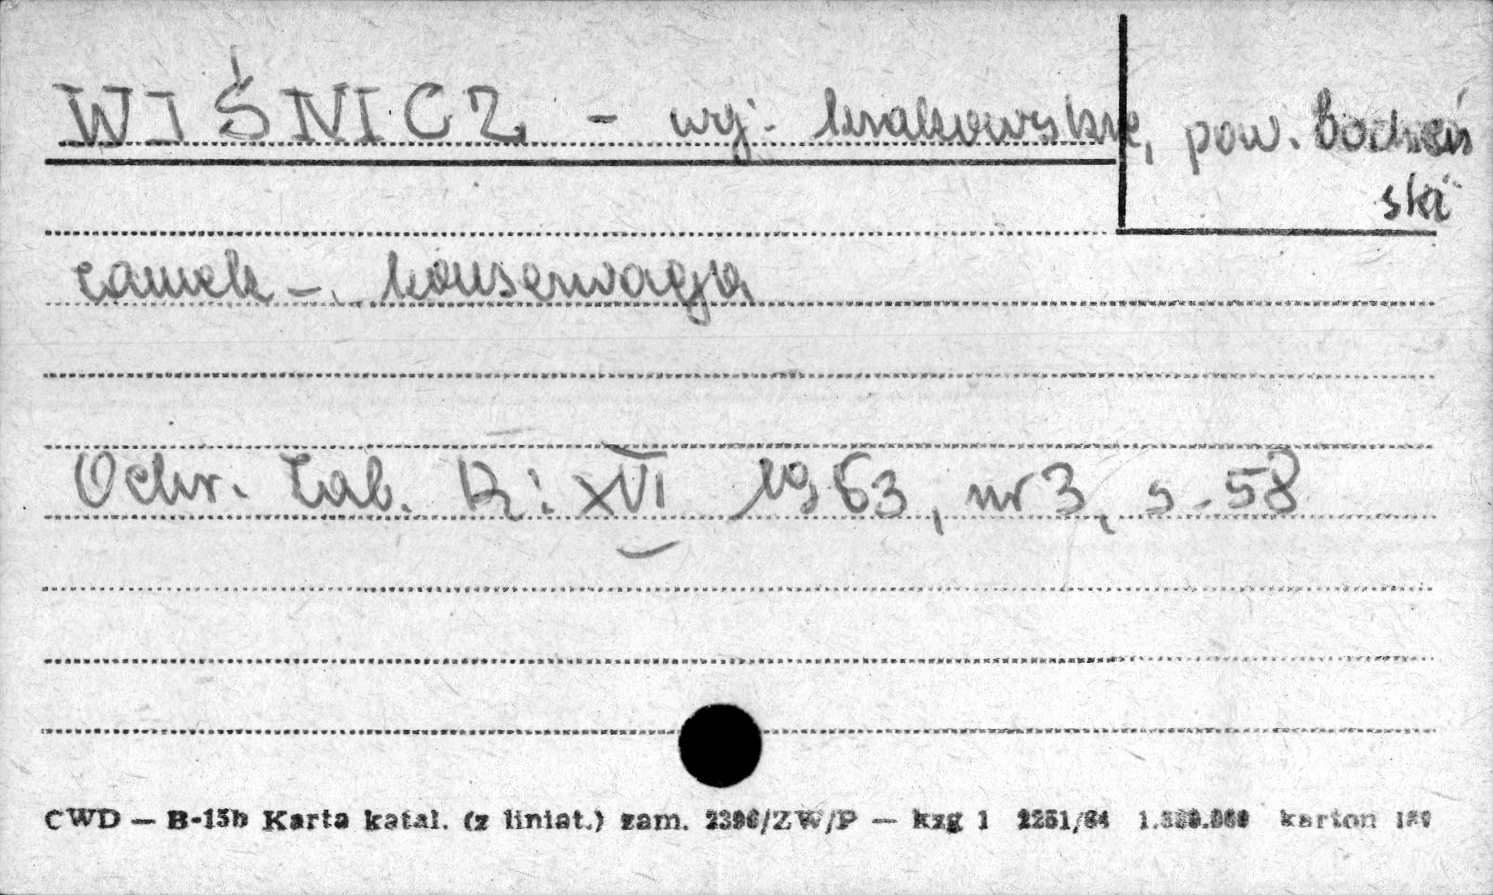 WIŚNICZ - wj. krakowskie, pow. bocheń
ski
zamek - konserwacja
Ochr. Zab. R: XVI 1963, nr 3, s. 58
CWD — B-15b Karta katal. (z liniat.) zam. /ZW/P — kzg 1 karton